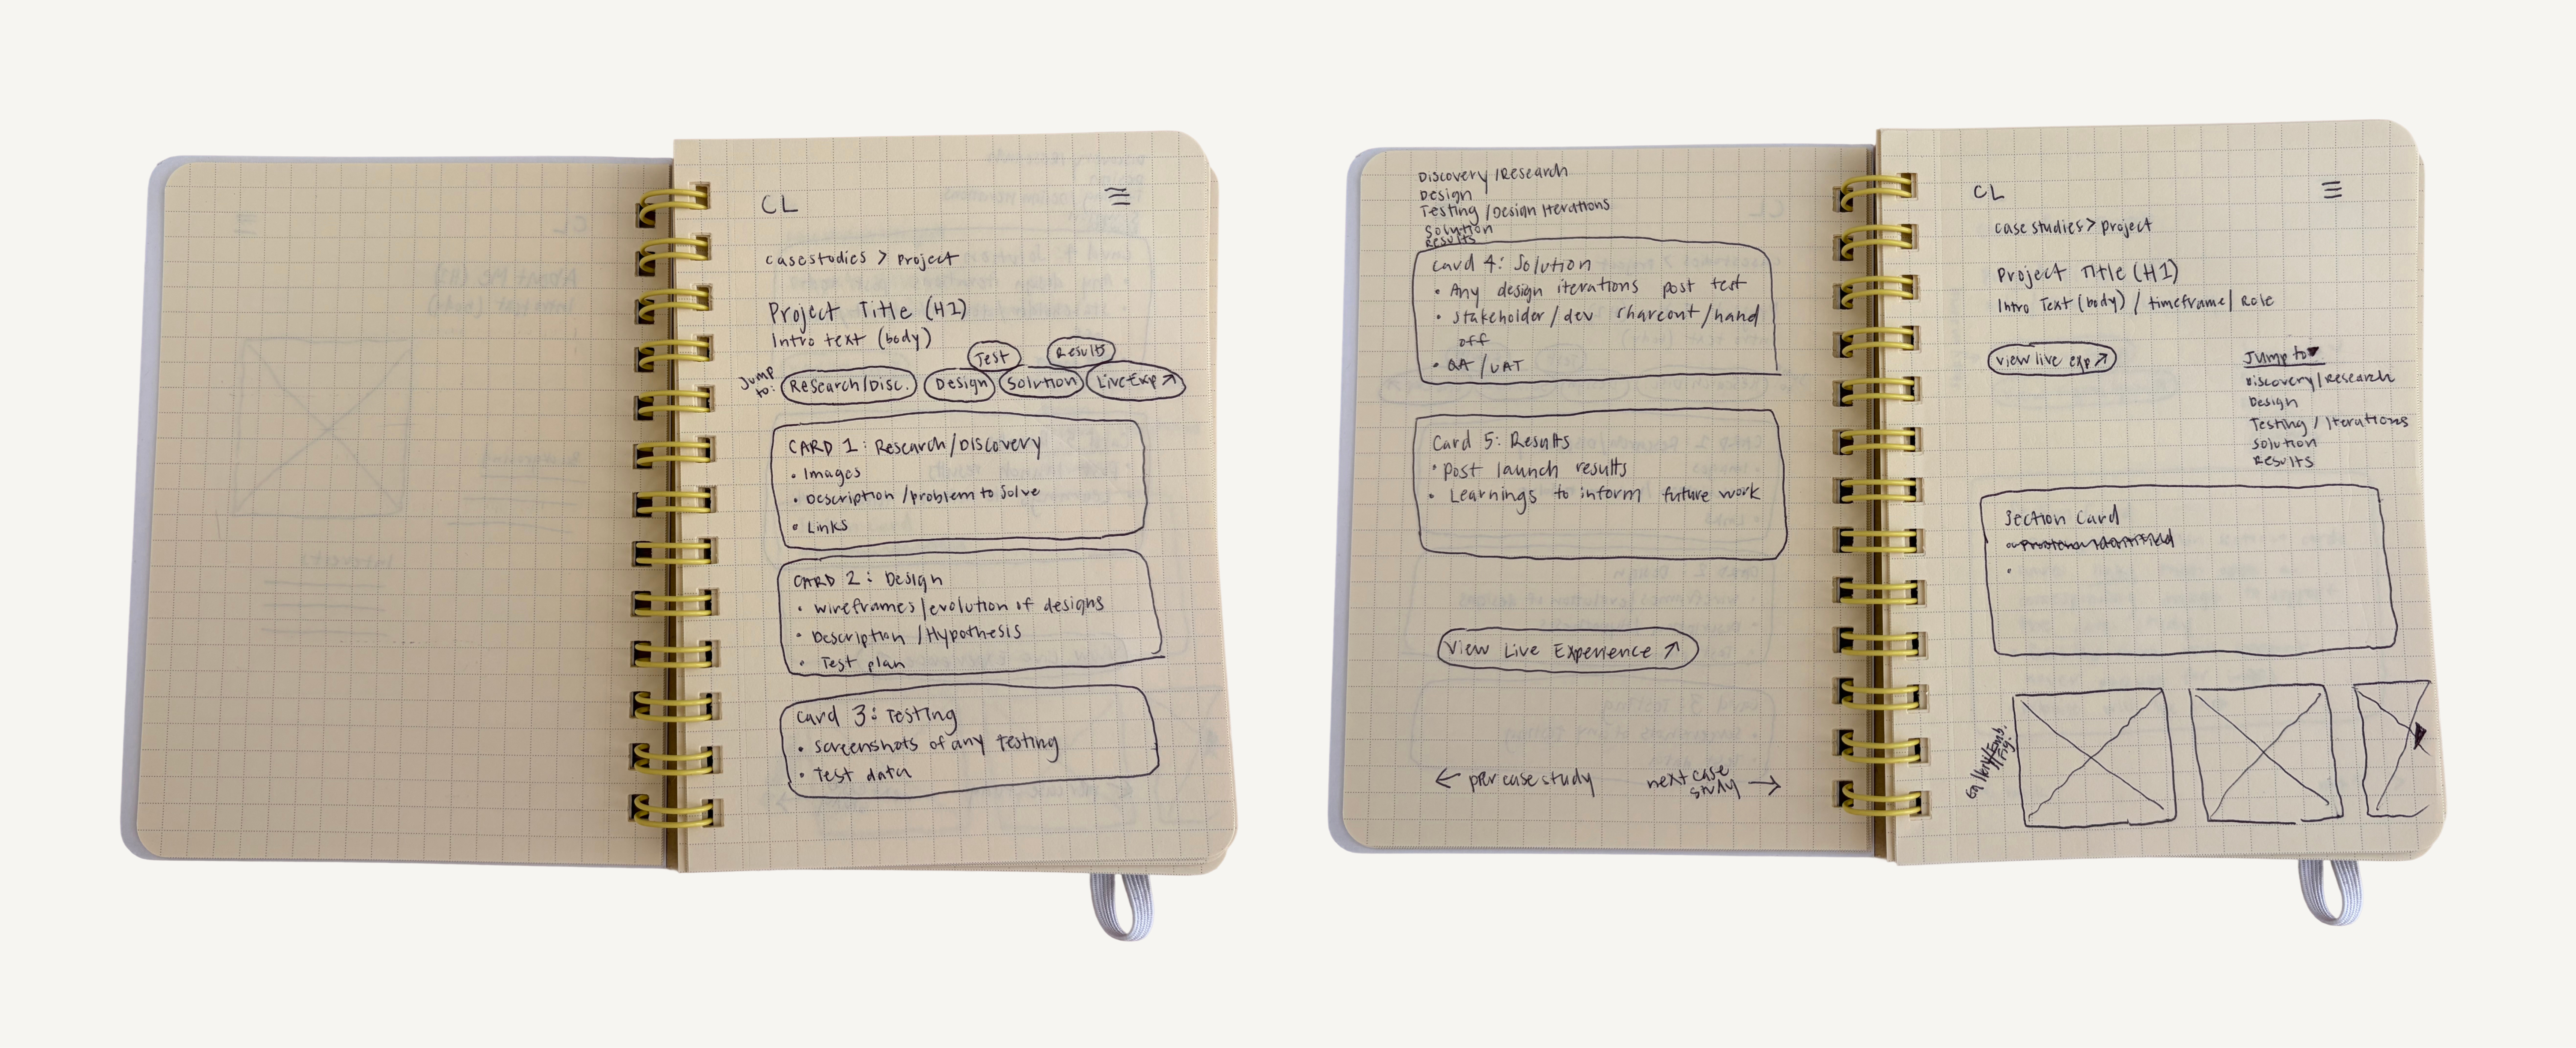 CL
casestudies > Project
Project Title (H1)
Intro text (body)
Jump to:
Test
Results
Research/Disc.
Design
Solution
Live Exp ↗
CARD 1: Research/Discovery
• Images
• Description/problem to solve
• Links
CARD 2: Design
• wireframes/evolution of designs
• Description/Hypothesis
• Test plan
Card 3: Testing
• screenshots of any testing
• Test data
Discovery/Research
Design
Testing/Design Iterations
Solution
Results
Card 4: Solution
• Any design iterations post test
• stakeholder/dev shareout/hand
off
• QA/UAT
Card 5: Results
• post launch results
• Learnings to inform future work
View Live Experience ↗
← prev case study
next case
study →
CL
case studies > project
Project Title (H1)
Intro Text (body) / timeframe / Role
view live exp ↗
Jump to ▾
Discovery/Research
Design
Testing/Iterations
Solution
Results
Section Card